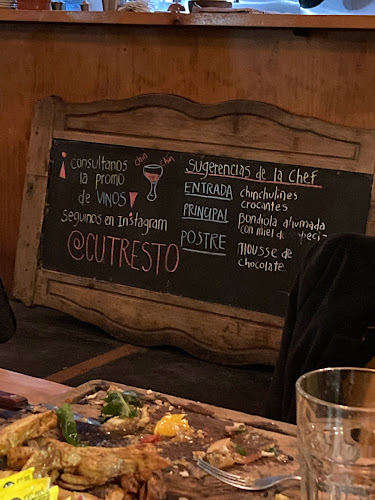 ¡consultanos
la promo
de VINOS!
chin chin
seguinos en Instagram
@CUTRESTO
sugerencias de la chef
ENTRADA chinchulines
crocantes
PRINCIPAL Bondiola ahumada
con miel de
POSTRE mousse de
chocolate